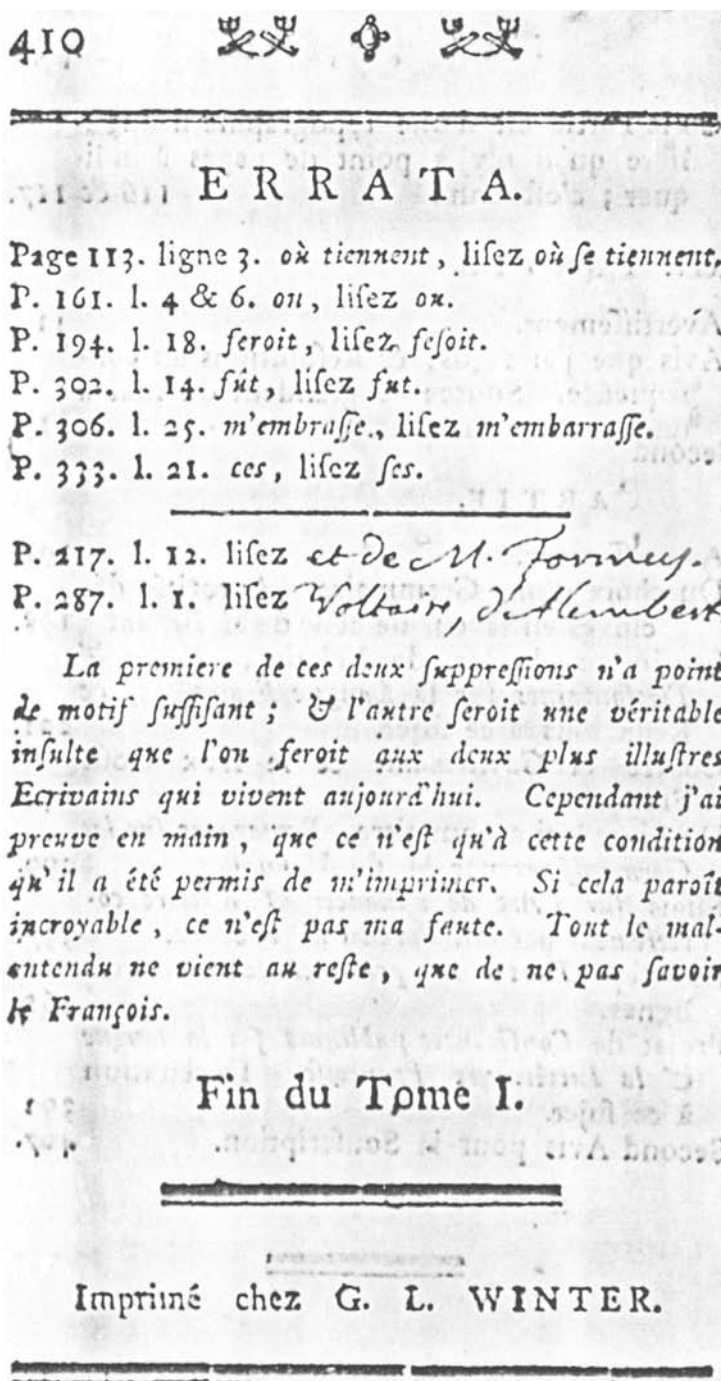 410
ERRATA.
Page 113. ligne 3. où tiennent, liſez où ſe tiennent.
P. 161. l. 4 & 6. on, liſez ou.
P. 194. l. 18. ſeroit, liſez feſoit.
P. 302. l. 14. fût, liſez fut.
P. 306. l. 25. m'embraſſe, liſez m'embarraſſe.
P. 333. l. 21. ces, liſez ſes.
P. 217. l. 12. liſez et de M. Formey.
P. 287. l. 1. liſez Voltaire, d'Alembert
La premiere de ces deux ſuppreſſions n'a point
de motif ſuffiſant ; & l'autre ſeroit une véritable
inſulte que l'on feroit aux deux plus illuſtres
Ecrivains qui vivent aujourd'hui. Cependant j'ai
preuve en main, que ce n'eſt qu'à cette condition
qu'il a été permis de m'imprimer. Si cela paroît
incroyable, ce n'eſt pas ma faute. Tout le mal-
entendu ne vient au reſte, que de ne pas ſavoir
le François.
Fin du Tome I.
Imprimé chez G. L. WINTER.